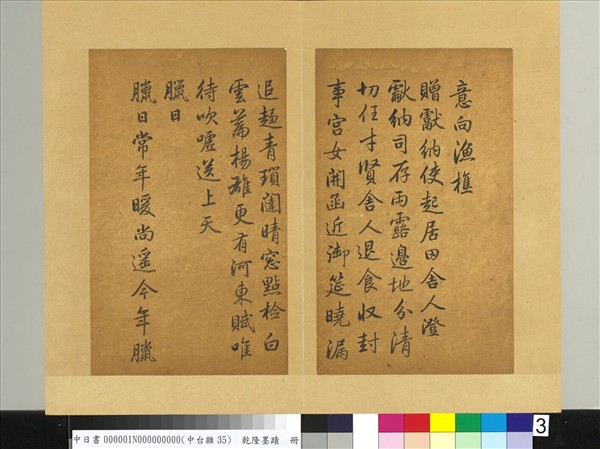 意向漁樵
贈獻納使起居田舍人澄
獻納司存雨露邊地分清
切任才賢舍人退食收封
事宮女開函近御筵曉漏
追趨青瑣闥晴窓點檢白
雲篇楊雄更有河東賦唯
待吹噓送上天
臘日
臘日常年暖尚遙今年臘
中日書 000001N000000000(中台雜35) 乾隆墨蹟 冊
3